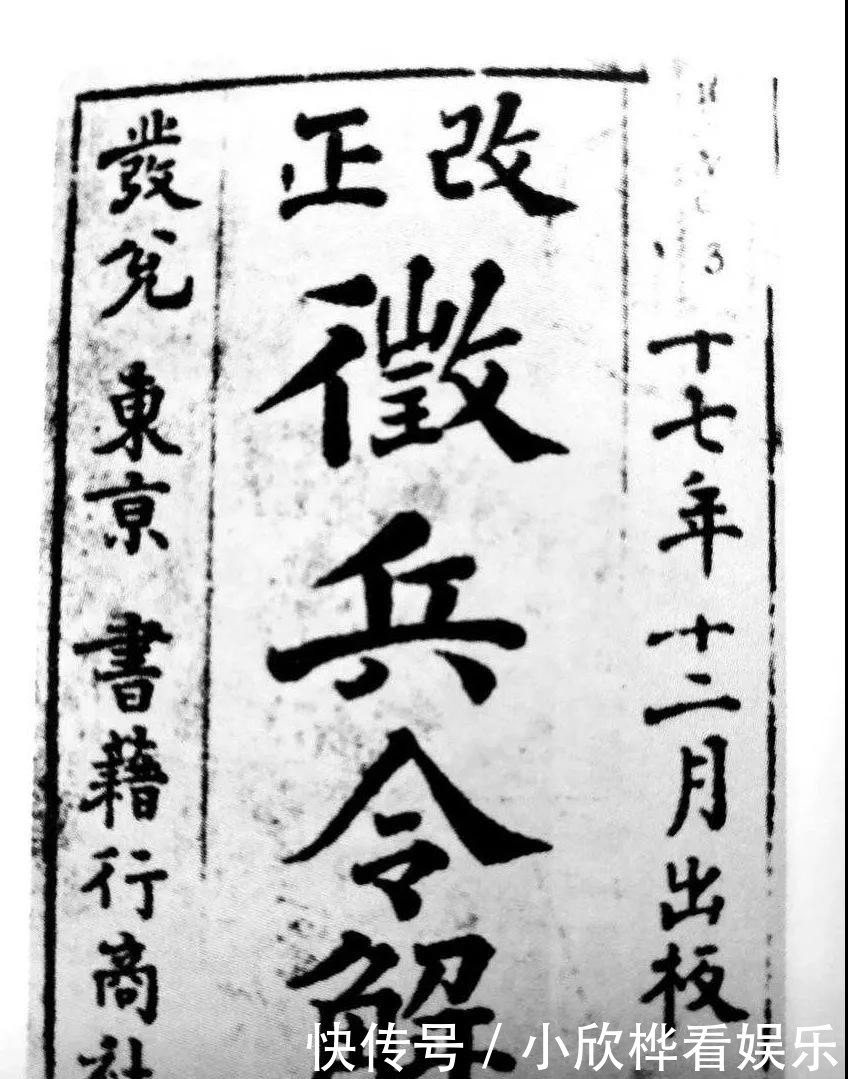 十七年十二月出板
改正
徵兵令解
發兌 東京 書藉行商社
快传号 / 小欣桦看娱乐